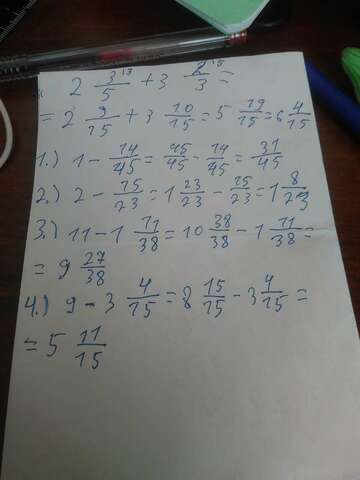 2 3/5 + 3 2/3 =
= 2 9/15 + 3 10/15 = 5 19/15 = 6 4/15
1.) 1 - 14/45 = 45/45 - 14/45 = 31/45
2.) 2 - 15/23 = 1 23/23 - 15/23 = 1 8/23
3.) 11 - 1 11/38 = 10 38/38 - 1 11/38 =
= 9 27/38
4.) 9 - 3 4/15 = 8 15/15 - 3 4/15 =
= 5 11/15